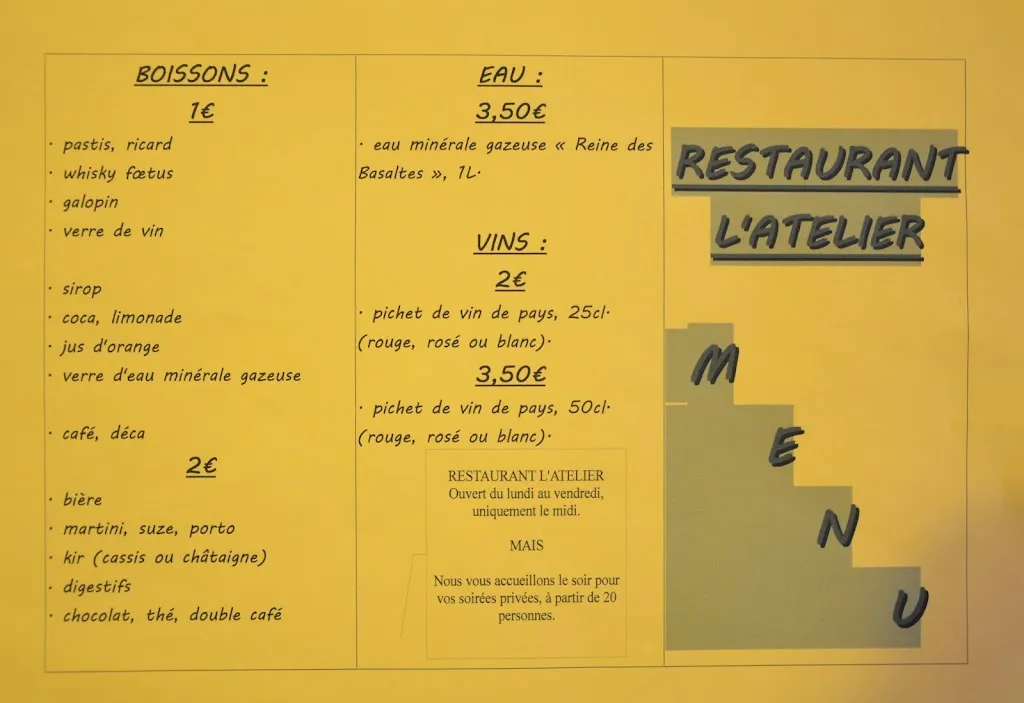 BOISSONS :
1€
· pastis, ricard
· whisky fœtus
· galopin
· verre de vin
· sirop
· coca, limonade
· jus d'orange
· verre d'eau minérale gazeuse
· café, déca
2€
· bière
· martini, suze, porto
· kir (cassis ou châtaigne)
· digestifs
· chocolat, thé, double café
EAU :
3,50€
· eau minérale gazeuse « Reine des
Basaltes », 1L·
VINS :
2€
· pichet de vin de pays, 25cl·
(rouge, rosé ou blanc)·
3,50€
· pichet de vin de pays, 50cl·
(rouge, rosé ou blanc)·
RESTAURANT L'ATELIER
Ouvert du lundi au vendredi,
uniquement le midi.
MAIS
Nous vous accueillons le soir pour
vos soirées privées, à partir de 20
personnes.
RESTAURANT
L'ATELIER
M
E
N
U